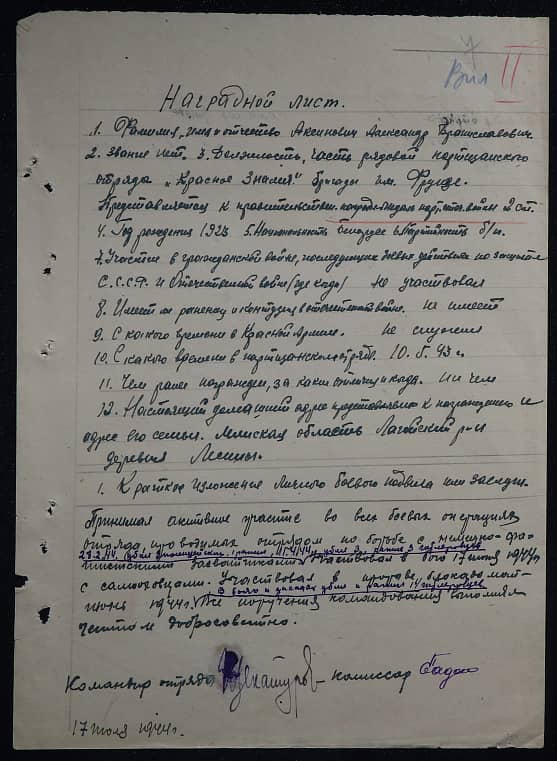 Вил II
Наградной лист.
1. Фамилия, имя и отчество Аксинович Александр Брониславович
2. Звание нет. 3. Должность, часть рядовой партизанского
отряда „Красное Знамя" бригады им. Фрунзе.
Представляется к правительствен. награде медаль парт. отеч. войны 2 ст.
4. Год рождения 1923 5. Национальность белорус 6. Партийность б/п.
7. Участие в гражданской войне, последующих боевых действиях по защите
С.С.С.Р. и Отечественной войне (где когда) не участвовал
8. Имеет ли ранения и контузии в отечественной войне. не имеет
9. С какого времени в Красной Армии. не служил
10. С какого времени в партизанском отряде. 10. 5. 43 г.
11. Чем ранее награжден, за какие отличия и когда. ни чем
12. Настоящий домашний адрес представляемого к награждению и
адрес его семьи. Минская область Логойский р-н
деревня
1. Краткое изложение личного боевого подвига или заслуг.
Принимал активное участие во всех боевых операциях
отряда, проводимых отрядом по борьбе с немецко-фа-
28.2.44 убил 2 1 ранил 11.4.44 убил 2 ранил 3 гитлеровцев
шистскими захватчиками. Участвовал в бою 17 июня 1944 г.
с самоховцами. Участвовал в прорыве блокады май-
В боях и засадах убил и ранил 14 гитлеровцев
июнь 1944 г. Все поручения командования выполнял
честно и добросовестно.
Командир отряда комиссар
17 июля 1944 г.